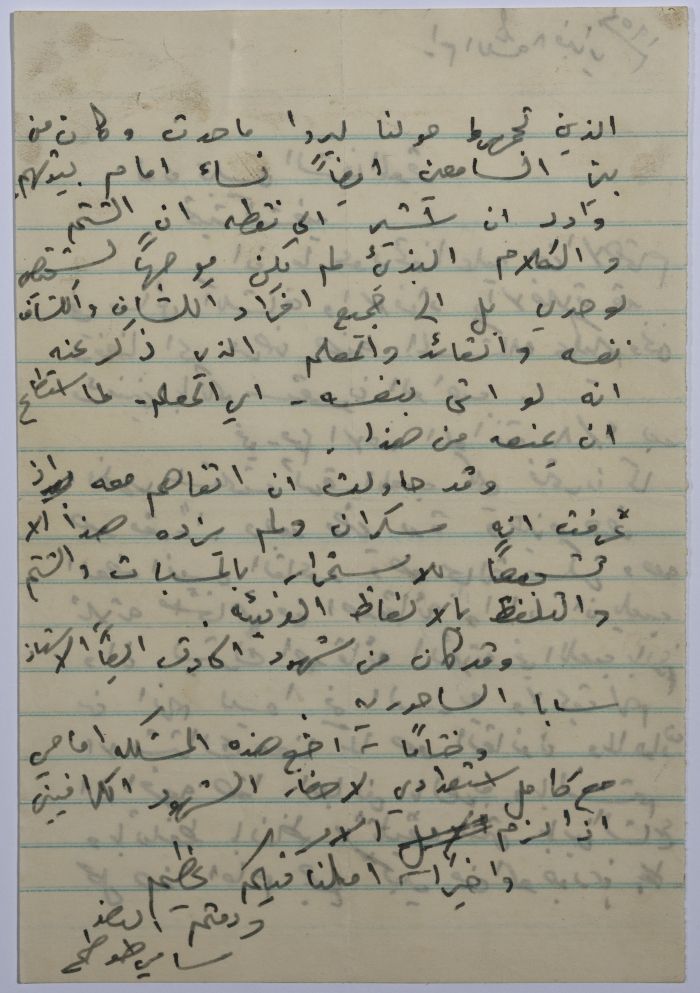 الذين تجمهروا حولنا ليروا ما حدث وكان من
بين السامعين ايضاً نساء امام بيوتهم.
واود ان اشير الى نقطه ان الشتم
والكلام البذئ لم يكن موجهاً لشخص
لوحدي بل الى جميع افراد الكشاف والكشاف
نفسه والقائد والمعلم الذي ذكر عنه
انه لو اتى بنفسه - اي المعلم - لما استطاع
ان يمنعه من هذا.
وقد حاولت ان اتفاهم معه واذ
عرفت انه سكران ولم يزده هذا الا
تشجيعاً للاستمرار بالمسبات والشتم
والتلفظ بالالفاظ الدنيئه.
وقد كان من شهود الحادث ايضاً الاستاذ
سابا الساحوريه.
وختاماً اضع هذه المشكله امامكم
مع كامل استعدادي لاحضار الشهود الكافيين
اذا لزم الامر.
واخيراً املنا فيكم عظيم
ودمتم
سامي